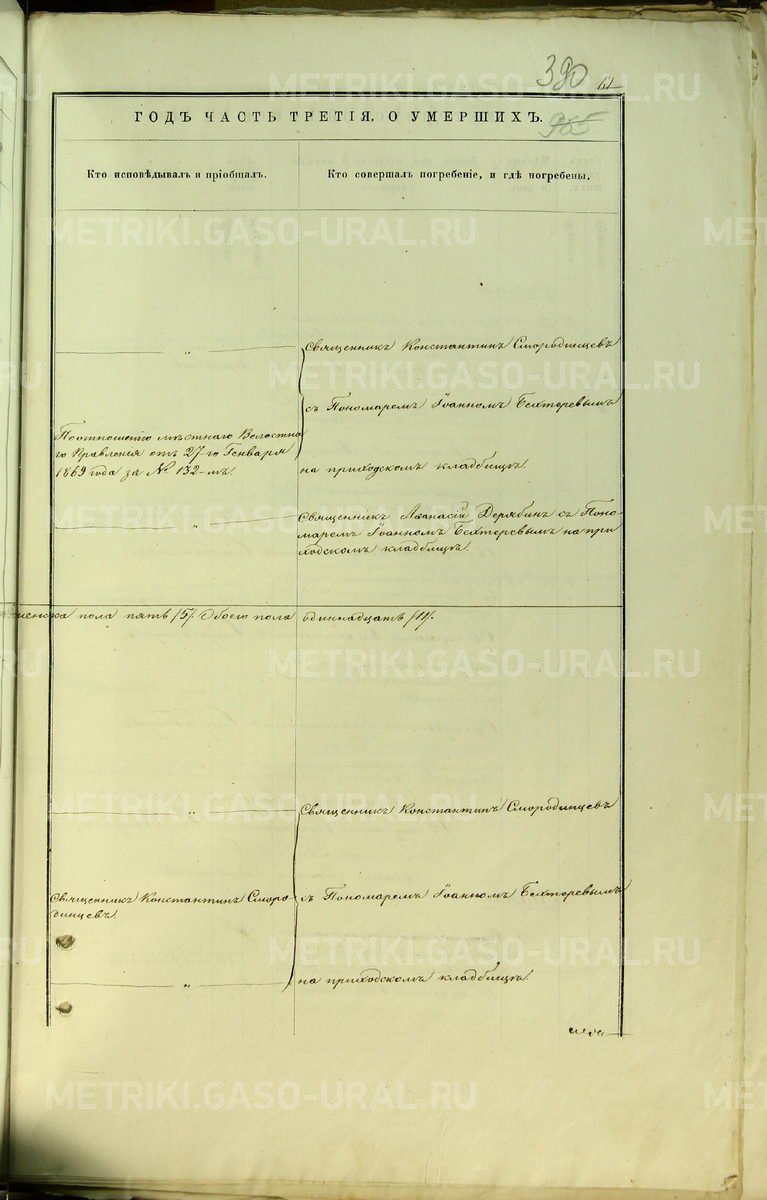 390
61
METRIKI.GASO-URAL.RU
ГОДЪ ЧАСТЬ ТРЕТІЯ, О УМЕРШИХЪ.
965
Кто исповѣдывалъ и пріобщалъ.
Кто совершалъ погребеніе, и гдѣ погребены.
METRIKI.GASO-URAL.RU
„
Священникъ Константинъ Смородинцевъ
METRIKI.GASO-URAL.RU
съ Пономаремъ Іоанномъ Бехтеревымъ
По отношенію мѣстнаго Волостно
го Правленія отъ 27-го Генваря
1869 года за № 132-мъ.
на приходскомъ кладбищѣ.
„
Священникъ Аѳанасій Дерябинъ съ Поно-
маремъ Іоанномъ Бехтеревымъ на при
ходскомъ кладбищѣ.
METRIKI.GASO-URAL.RU
женска пола пять /5/. Обоего пола одиннадцать /11/.
METRIKI.GASO-URAL.RU
METRIKI.GASO-URAL.RU
„
Священникъ Константинъ Смородинцевъ
Священникъ Константинъ Сморо-
динцевъ.
съ Пономаремъ Іоанномъ Бехтеревымъ
METRIKI.GASO-URAL.RU
„
на приходскомъ кладбищѣ.
METRIKI.GASO-URAL.RU